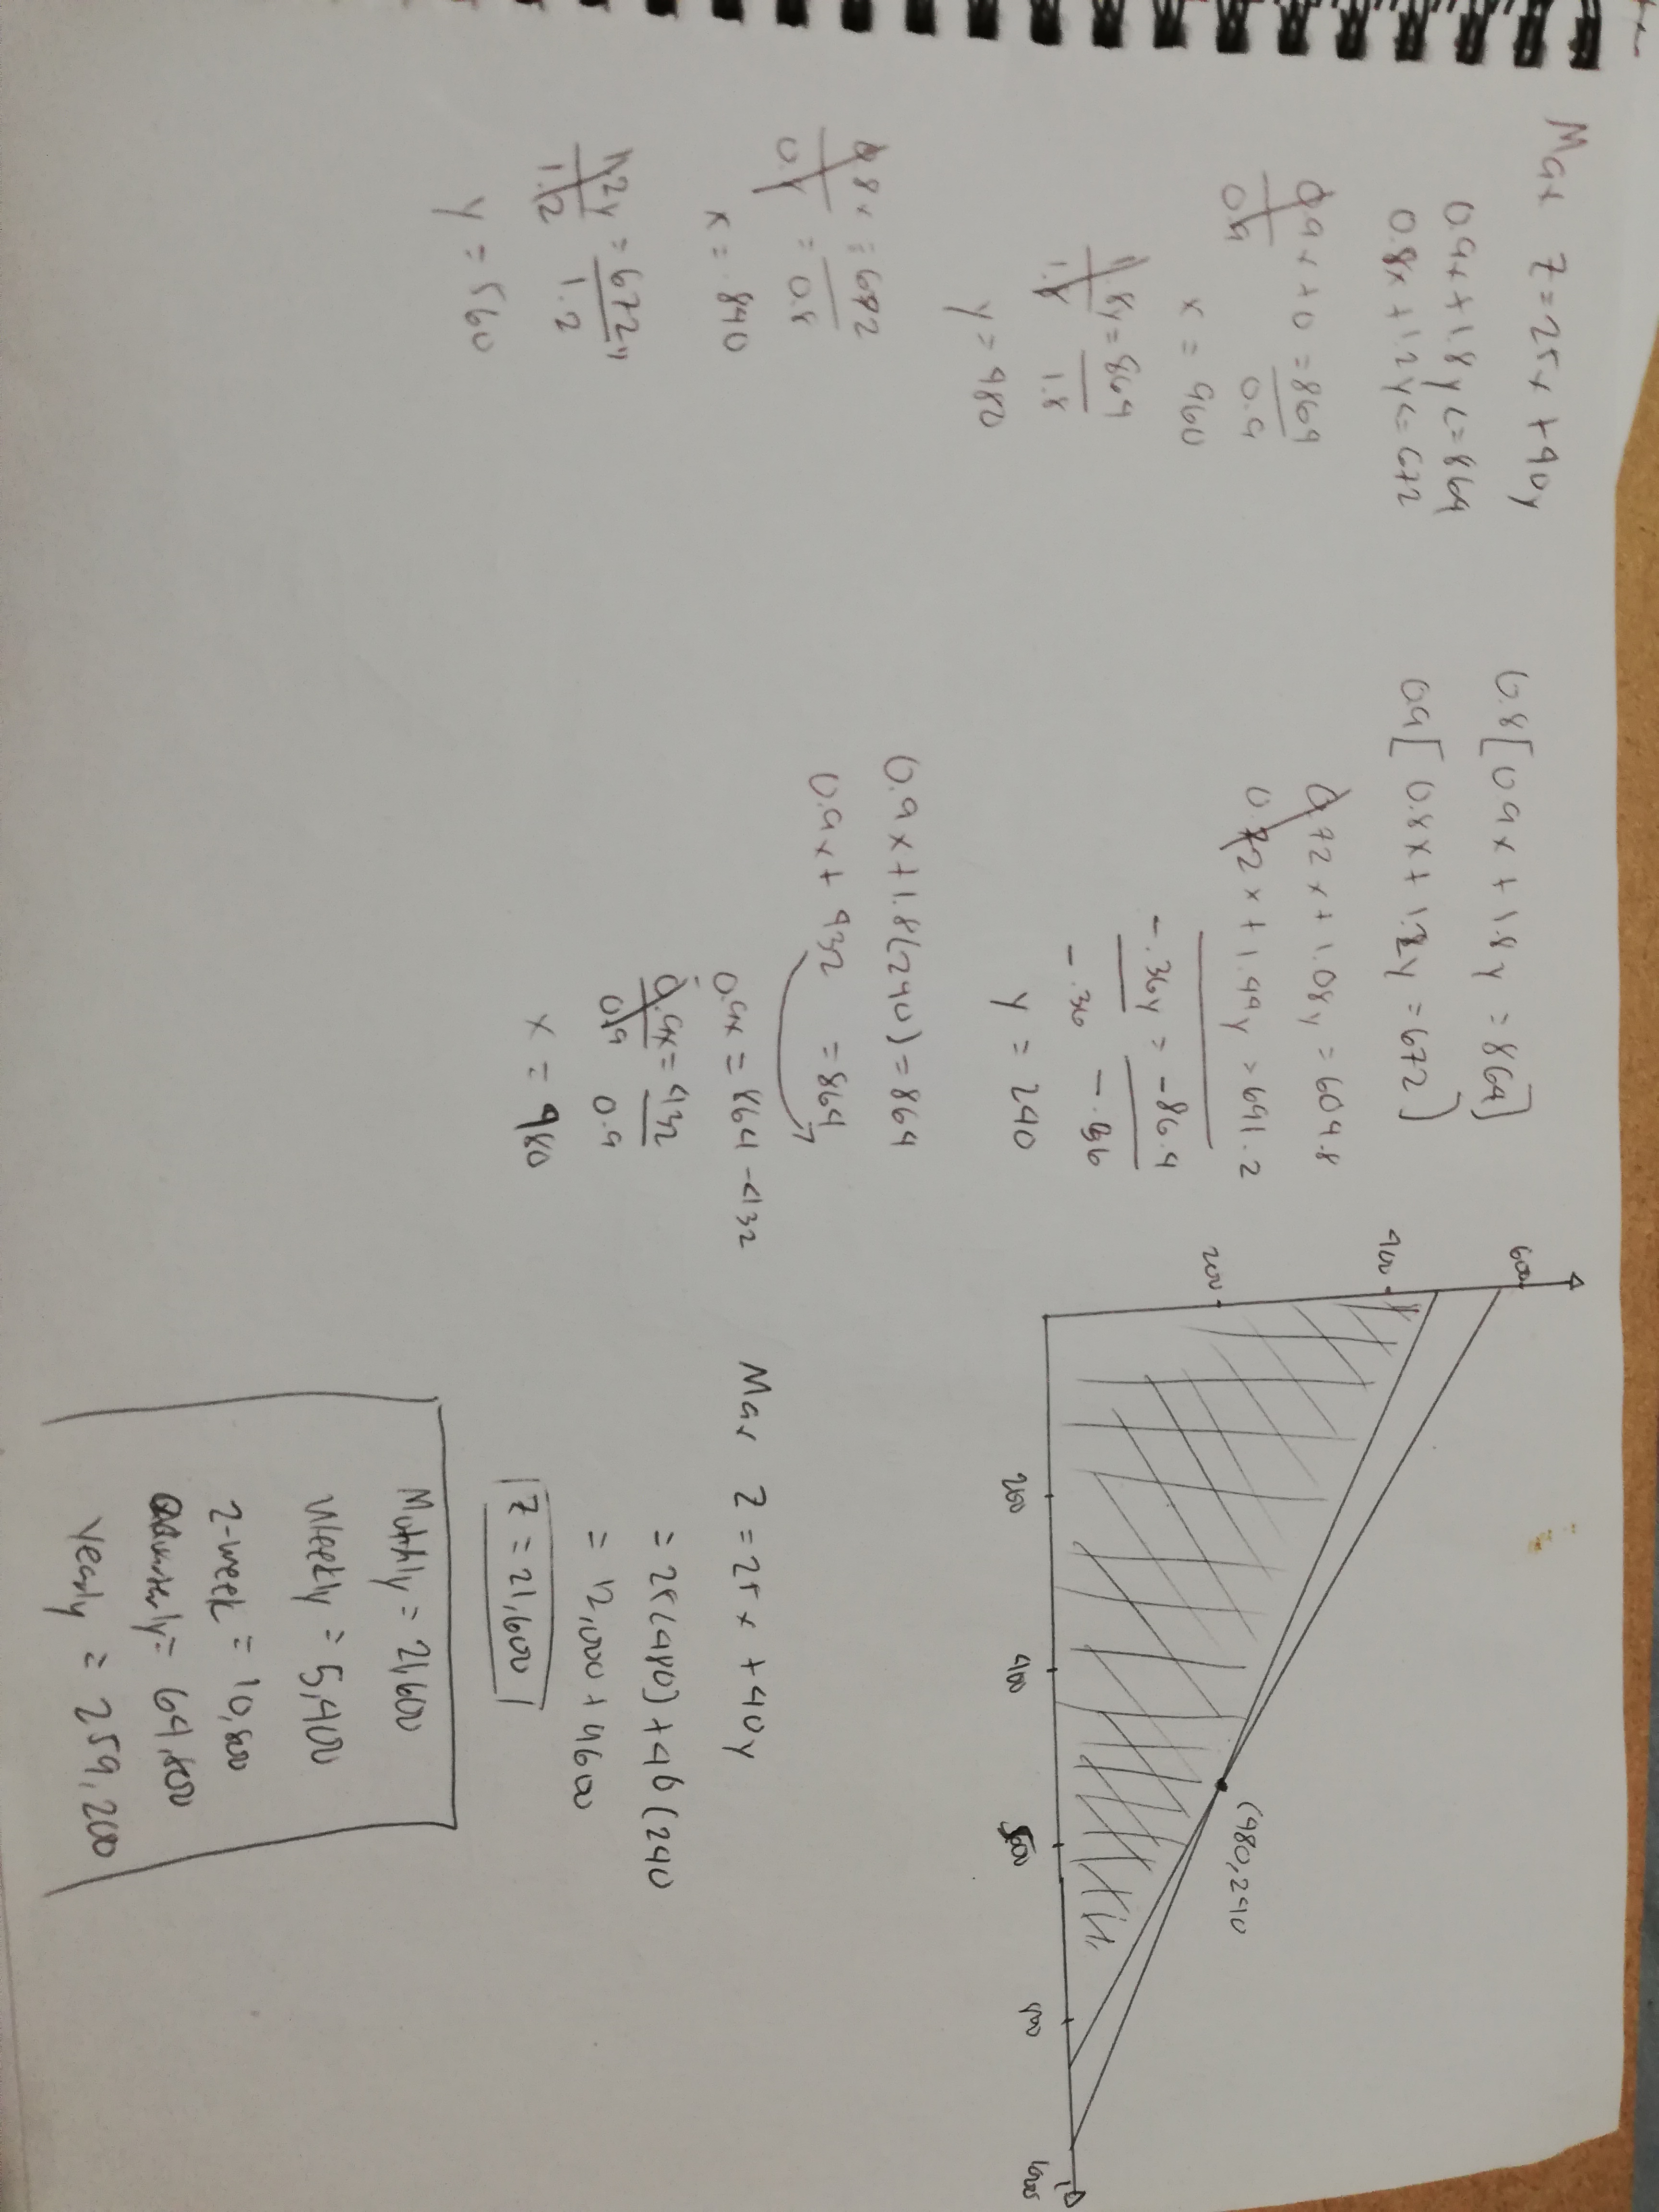 Max Z=25x+40y
0.9x+1.8y<=864
0.8x+1.2y<=672
0.9x+0 =864
0.9 0.9
x = 960
1.8y=864
1.8 1.8
y = 480
0.8x = 672
0.8 = 0.8
x = 840
1.2y = 672
1.2 1.2
y = 560
0.8[0.9x+1.8y =864]
0.9[0.8x+1.2y =672]
0.72x+1.08y =604.8
0.72x+1.44y =691.2
-.36y = -86.4
-.36 -.36
y = 240
0.9x+1.8(240)=864
0.9x+ 432 =864
0.9x = 864-432
0.9x= 432
0.9 0.9
x = 480
600
400
200
(480,240
200 400 600 800 1000
Max Z=25x+40y
= 25(480)+40(240
= 12,000+9600
Z = 21,600
Mothly = 21,600
Weekly = 5,400
2-week = 10,800
Quarterly= 64,800
Yearly = 259,200